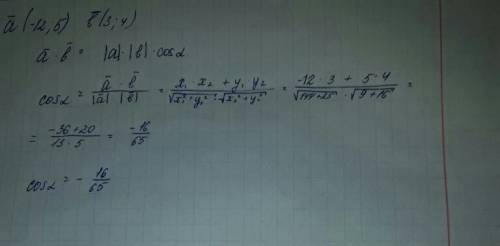 ā (-12, 5)   b̄ (3; 4)
ā · b̄ = |a| · |b| · cos α
cos α = (ā · b̄)/(|a| |b|) = (x₁ x₂ + y₁ y₂)/(√(x₁² + y₁²) · √(x₂² + y₂²)) = (-12 · 3 + 5 · 4)/(√(144 + 25) · √(9 + 16)) =
= (-36 + 20)/(13 · 5) = -16/65
cos α = - 16/65